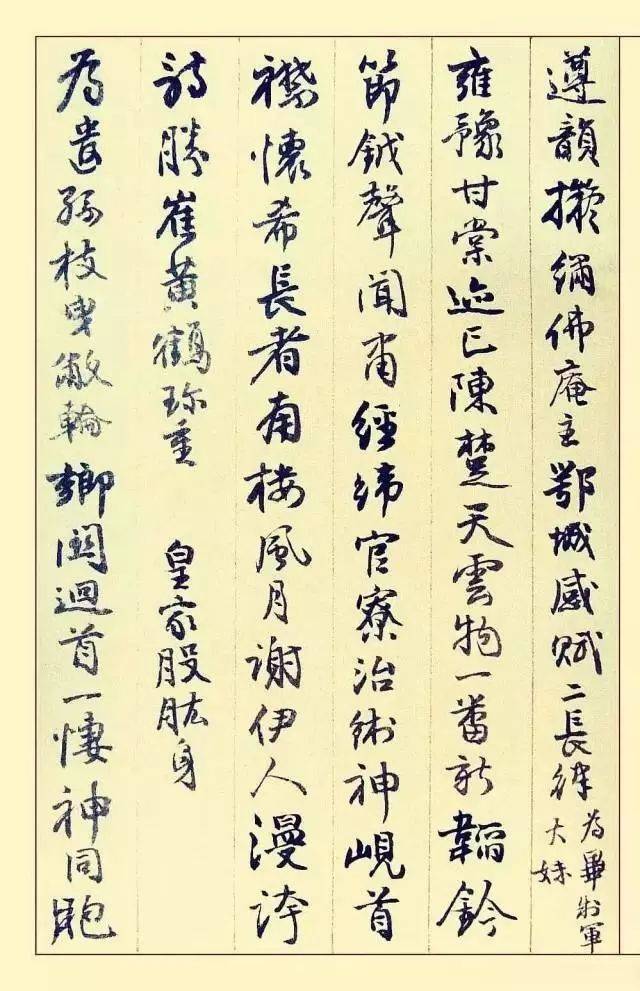 遵韻擬彌佛庵主鄂城感賦二長律
為畢將軍
大妹
雍豫甘棠迹已陳楚天雲物一番新韜鈐
節鉞聲聞甫經緯官寮治術神峴首
襟懷希長者南楼風月謝伊人漫誇
詩勝崔黃鶴珍重 皇家股肱身
為遣孫枝曳敝輪鄉關迴首一悽神同胞